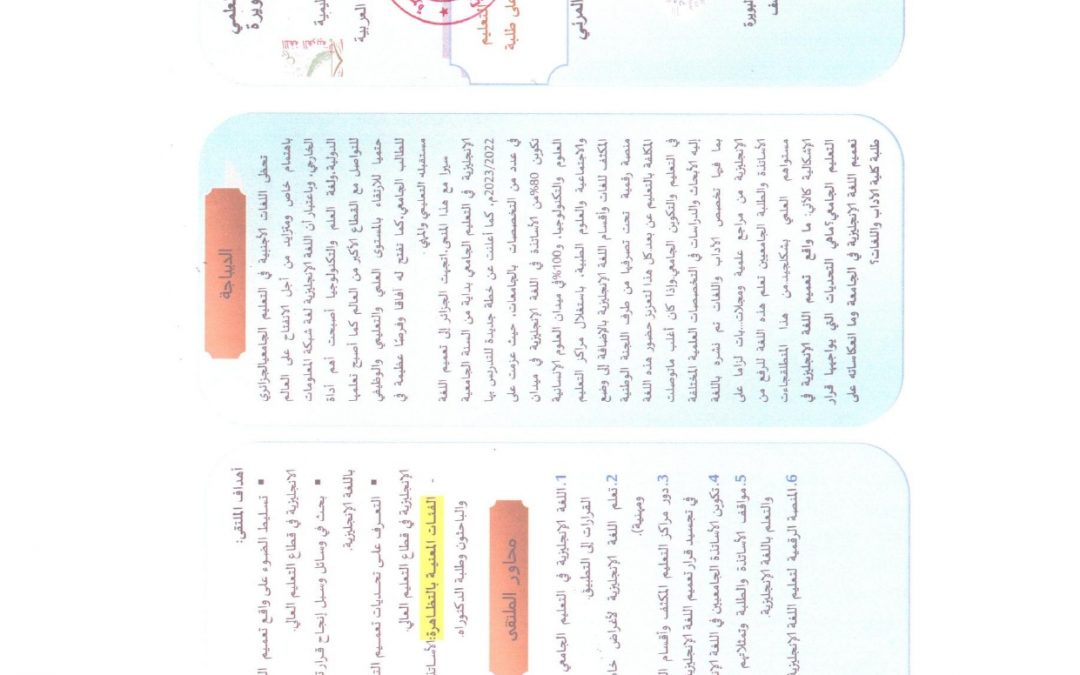 العربية
التعليم
على طلبة
الديباجة
تحظى اللغات الأجنبية في التعليم الجامعيالجزائري
باهتمام خاص ومتزايد من أجل الانفتاح على العالم
الخارجي، وباعتبار أن اللغة الإنجليزية لغة شبكة المعلومات
الدولية،ولغة العلم والتكنولوجيا أصبحت أهم أداة
للتواصل مع القطاع الأكبر من العالم كما أصبح تعلمها
حتميا للارتقاء بالمستوى العلمي والتعليمي والوظيفي
للطالب الجامعي،كما تفتح له آفاقا وفرصا عظيمة في
مستقبله التعليمي والمهني.
سيرا مع هذا المنحى،اتجهت الجزائر إلى تعميم اللغة
الإنجليزية في التعليم الجامعي بداية من السنة الجامعية
2023/2022م، كما أعلنت عن خطة جديدة للتدريس بها
في عدد من التخصصات بالجامعات، حيث عزمت على
تكوين 80%من الأساتذة في اللغة الإنجليزية في ميدان
العلوم والتكنولوجيا، و100%في ميدان العلوم الإنسانية
والاجتماعية والعلوم الطبية، باستغلال مراكز التعليم
المكثف للغات وأقسام اللغة الإنجليزية بالإضافة إلى وضع
منصة رقمية تحت تصرفها من طرف اللجنة الوطنية
المكلفة بالتعليم عن بعد.كل هذا لتعزيز حضور هذه اللغة
في التعليم والتكوين الجامعي.وإذا كان أغلب ماتوصلت
إليه الأبحاث والدراسات في التخصصات العلمية المختلفة
بما فيها تخصص الآداب واللغات تم نشره باللغة
الإنجليزية من مراجع علمية ومجلات..بات لزاما على
الأساتذة والطلبة الجامعيين تعلم هذه اللغة للرفع من
مستواهم العلمي بشكلجيد.من هذا المنطلقجاءت
الإشكالية كالآتي: ما واقع تعميم اللغة الإنجليزية في
التعليم الجامعي؟مامي التحديات التي يواجهها قرار
تعميم اللغة الإنجليزية في الجامعة وما انعكاساته على
طلبة كلية الآداب واللغات؟
أهداف الملتقى:
▪ تسليط الضوء على واقع تعميم
الانجليزية في قطاع التعليم العالي.
▪ بحث في وسائل وسبل إنجاح قرار
باللغة الإنجليزية.
▪ التعرف على تحديات تعميم
الإنجليزية في قطاع التعليم العالي.
- الفئات المعنية بالتظاهرة:
والباحثون وطلبة الدكتوراه.
محاور الملتقى
1.اللغة الإنجليزية في التعليم الجامعي
القرارات إلى التطبيق.
2.تعلم اللغة الإنجليزية لأغراض
ومهنية).
3.دور مراكز التعليم المكثف وأقسام
في تجسيد قرار تعميم اللغة
4.تكوين الأساتذة الجامعيين في اللغة
5.مواقف الأساتذة والطلبة وتمثلاتهم
والتعلم باللغة الإنجليزية.
6.المنصة الرقمية لتعليم اللغة